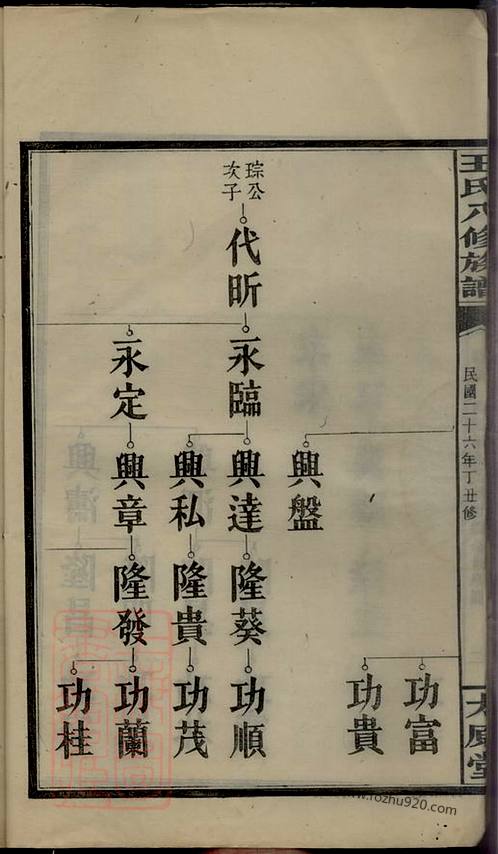 王氏八修族譜
民國二十六年丁丑修
大風堂
琮公
次子
代昕
永臨
永定
興盤
興達
興私
興章
隆葵
隆貴
隆發
功富
功貴
功順
功茂
功蘭
功桂
興
隆昌
www.rozhu920.com